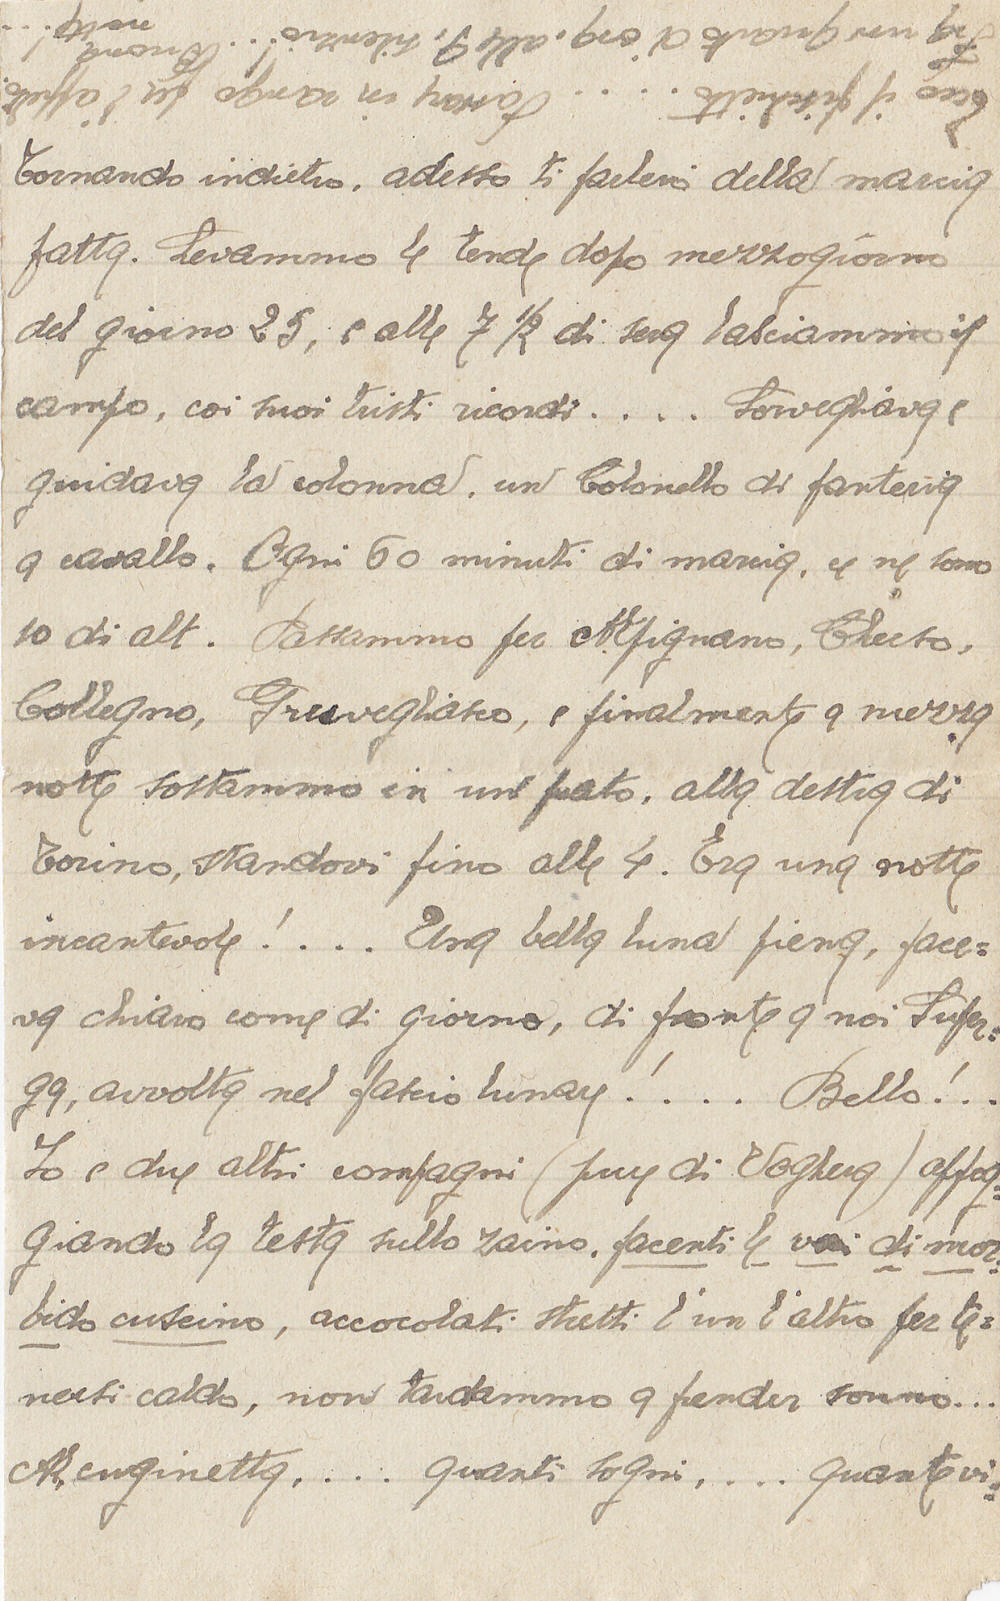 Ecco il fischietto . . . . . Torno in rango per l'appello.
Fra un quarto d'ora, alle 9, silenzio! . . . Buona notte! . . .
Tornando indietro, adesso ti parlerò della marcia
fatta. Levammo le tende dopo mezzogiorno
del giorno 25, e alle 7 1/2 di sera lasciammo il
campo, coi suoi tristi ricordi . . . . Sorvegliava e
guidava la colonna, un Colonello di fanteria
a cavallo. Ogni 60 minuti di marcia, ce ne sono
10 di alt. Passammo per Alpignano,
Collegno, Gruvegliasco, e finalmente a mezza
notte sostammo in un prato, alla destra di
Torino, standovi fino alle 4. Era una notte
incantevole! . . . . Una bella luna piena, face=
va chiaro come di giorno, di fronte a noi Super=
ga, avvolta nel fascio lunare! . . . . Bello! . .
Io e due altri compagni (pure di Voghera) appog=
giando la testa sullo zaino, facenti le veci di mor=
bido cuscino, accocolati stretti l'un l'altro per te=
nersi caldo, non tardammo a prender sonno...
Ah, cuginetta, . . . . quanti sogni, . . . . quante vi=